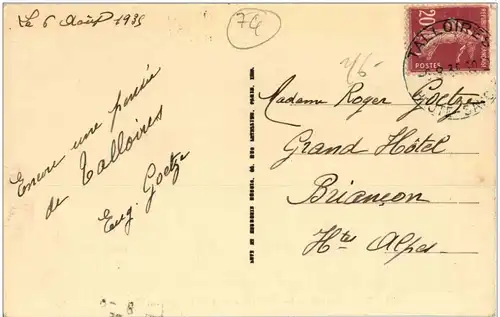 Le 6 Août 1935
74
20
POSTES
TALLOIRES
Encore une pensée
de Talloires
Eug. Goetze
Madame Roger Goetze
Grand Hôtel
Briançon
Htes Alpes